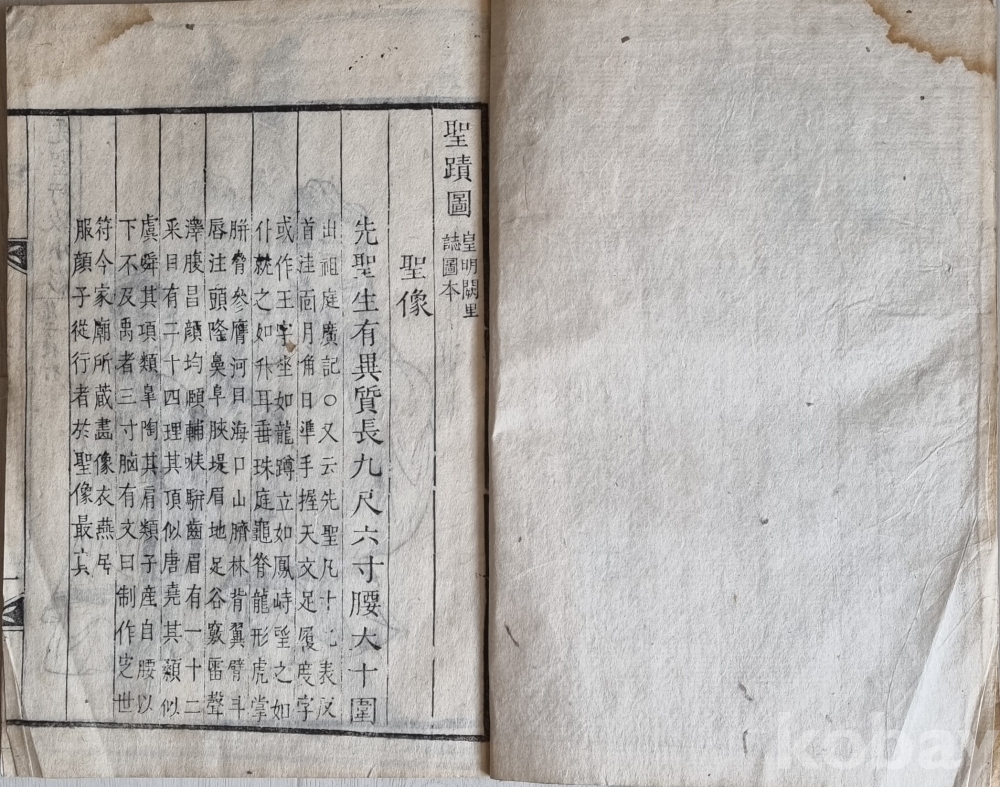 聖蹟圖 皇明闕里
誌圖本
聖像
先聖生有異質長九尺六寸腰大十圍
出祖庭廣記○又云先聖凡十九表反
首洼面月角日準手握天文足履度字
或作王字坐如龍蹲立如鳳峙望之如
仆就之如升耳垂珠庭龜脊龍形虎掌
騈脅參膺河目海口山臍林背翼臂斗
唇注頭隆鼻阜脥堤眉地足谷竅雷聲
澤腹昌顔均頤輔喉騈齒眉有一十二
采目有二十四理其頂似唐堯其顙似
虞舜其項類皐陶其肩類子産自腰以
下不及禹者三寸脑有文曰制作定世
符今家廟所蔵畵像衣燕居
服顔子從行者於聖像最真
kobay